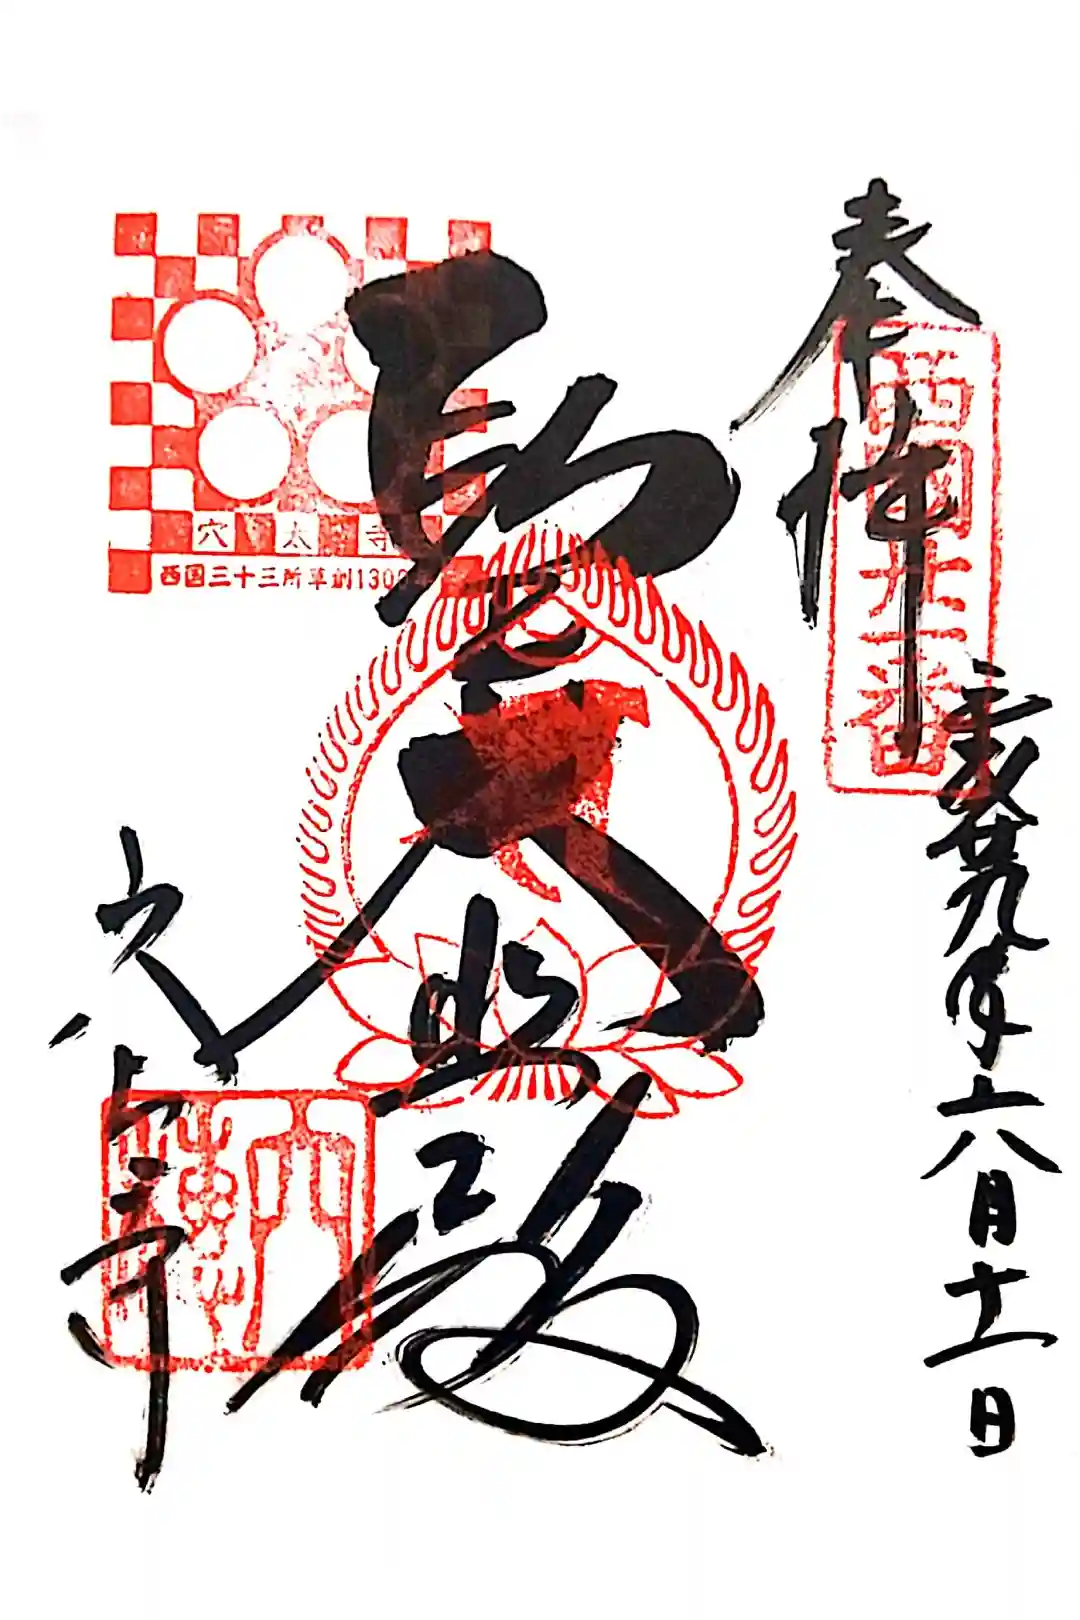 奉拝
西國廿一番
平成廿九年六月十一日
聖大悲殿
穴太寺
西国三十三所草創1300年
穴太寺